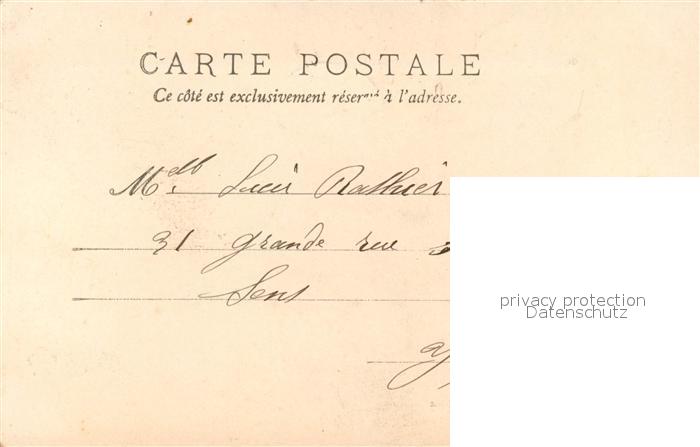 CARTE POSTALE
Ce côté est exclusivement réservé à l'adresse.
Melle Lucie Rathier
31 grande rue
Sens
privacy protection
Datenschutz